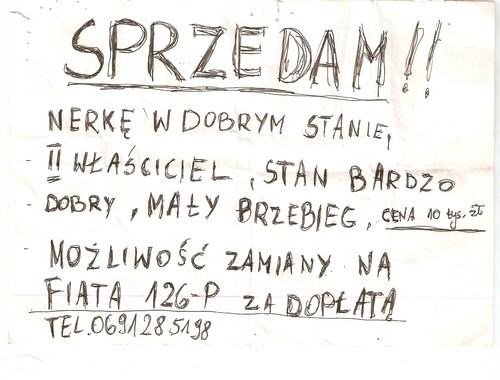 SPRZEDAM!!
NERKĘ W DOBRYM STANIE,
II WŁAŚCICIEL, STAN BARDZO
DOBRY, MAŁY PRZEBIEG, CENA 10 tys. zł
MOŻLIWOŚĆ ZAMIANY NA
FIATA 126-P ZA DOPŁATĄ
TEL. 0691285198